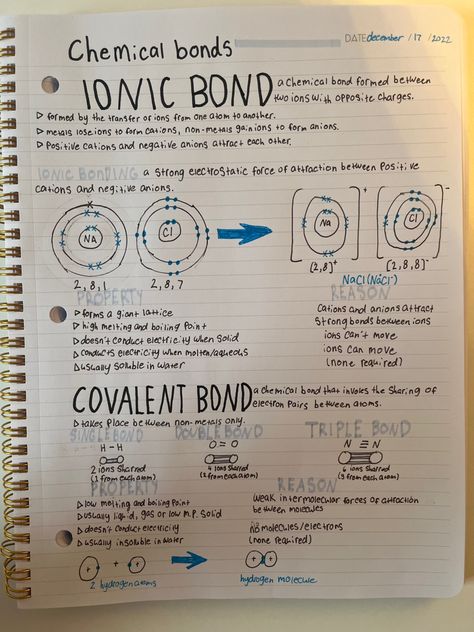 DATE december / 17 / 2022
Chemical bonds
IONIC BOND a chemical bond formed between
two ions with opposite charges.
▷ formed by the transfer or ions from one atom to another.
▷ metals lose ions to form cations, non-metals gain ions to form anions.
▷ Positive cations and negative anions attract each other.
IONIC BONDING a strong electrostatic force of attraction between positive
cations and negitive anions.
NA
Cl
Na
+
Cl
-
2, 8, 1
2, 8, 7
[2,8]+
[2,8,8]-
NaCl (Na+Cl-)
PROPERTY
REASON
▷ forms a giant lattice
Cations and anions attract
▷ high melting and boiling Point
Strong bonds between ions
▷ doesn't conduct electricity when solid
ions can't move
▷ Conducts electricity when molten/aqueous
ions can move
▷ usually soluble in water
(none required)
COVALENT BOND a chemical bond that involes the sharing of
electron Pairs between atoms.
▷ takes place between non-metals only.
SINGLE BOND
DOUBLE BOND
TRIPLE BOND
H - H
O = O
N ≡ N
2 ions sharred
4 ions sharred
6 ions sharred
(1 from each atom)
(2 from each atom)
(3 from each atom)
PROPERTY
REASON
▷ low melting and boiling Point
Weak intermolecular forces of attraction
▷ usually liquid, gas or low M.P. Solid
between molecules
▷ doesn't conduct electricity
molecules/electrons
▷ usually insoluble in water
(none required)
+
+
+ +
2 hydrogen atoms
hydrogen molecule